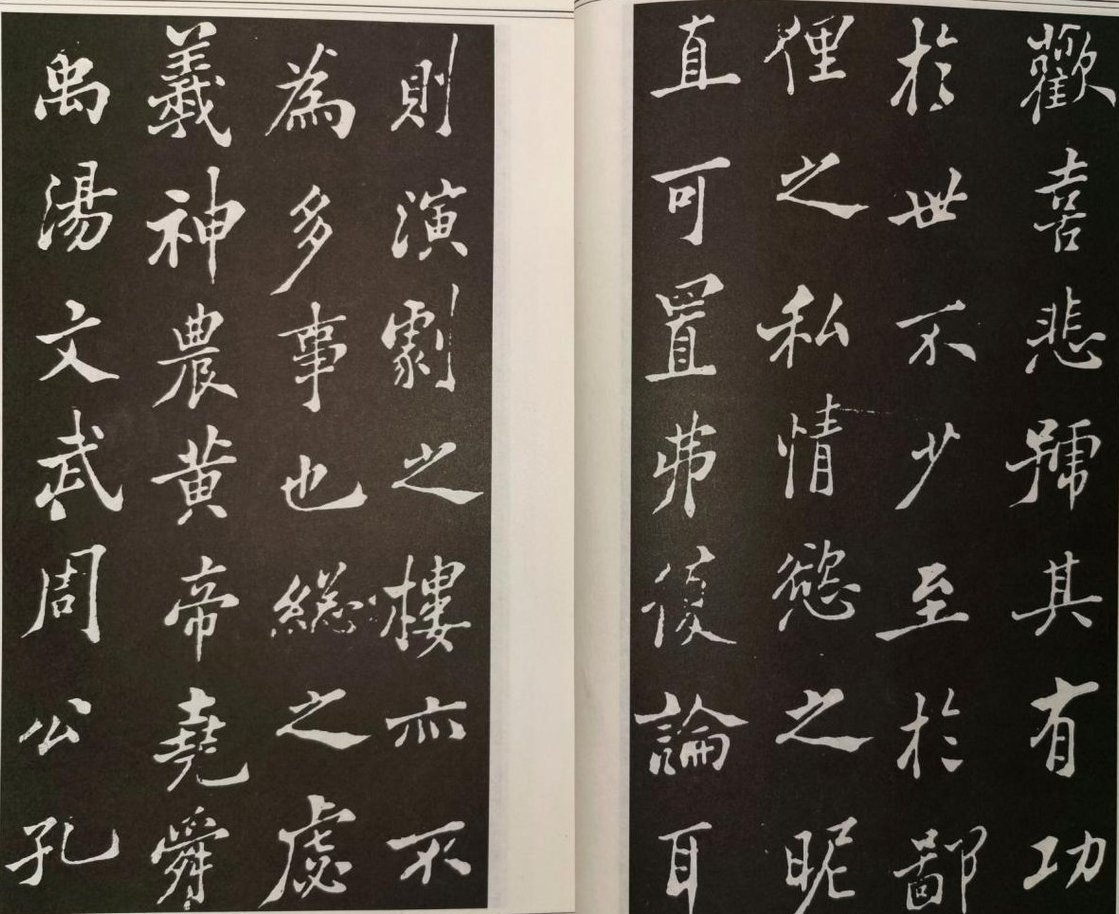 歡喜悲號其有功
於世不少至於鄙
俚之私情慾之昵
直可置弗復論耳
則演劇之樓亦不
為多事也總之虙
羲神農黃帝堯舜
禹湯文武周公孔